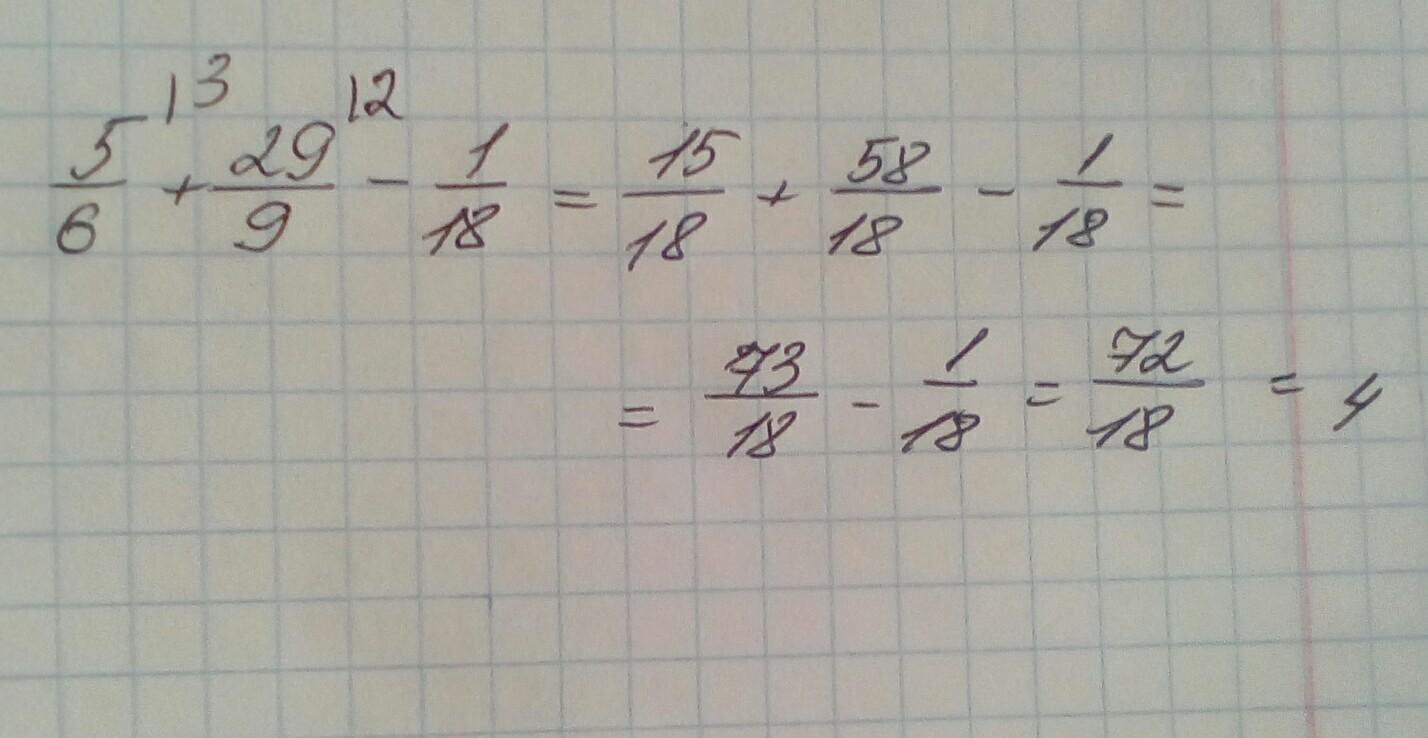 5/6 |3 + 29/9 |2 - 1/18 = 15/18 + 58/18 - 1/18 =
= 73/18 - 1/18 = 72/18 = 4